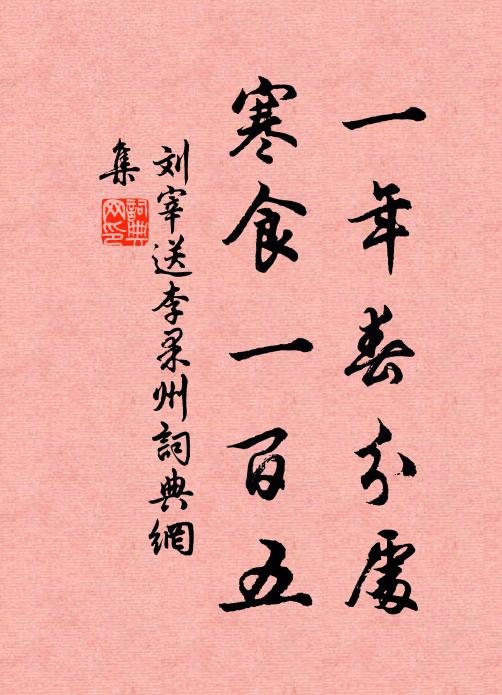 一年春分處
寒食一百五
刘宰送李果州詞典網
集
詞典
网印